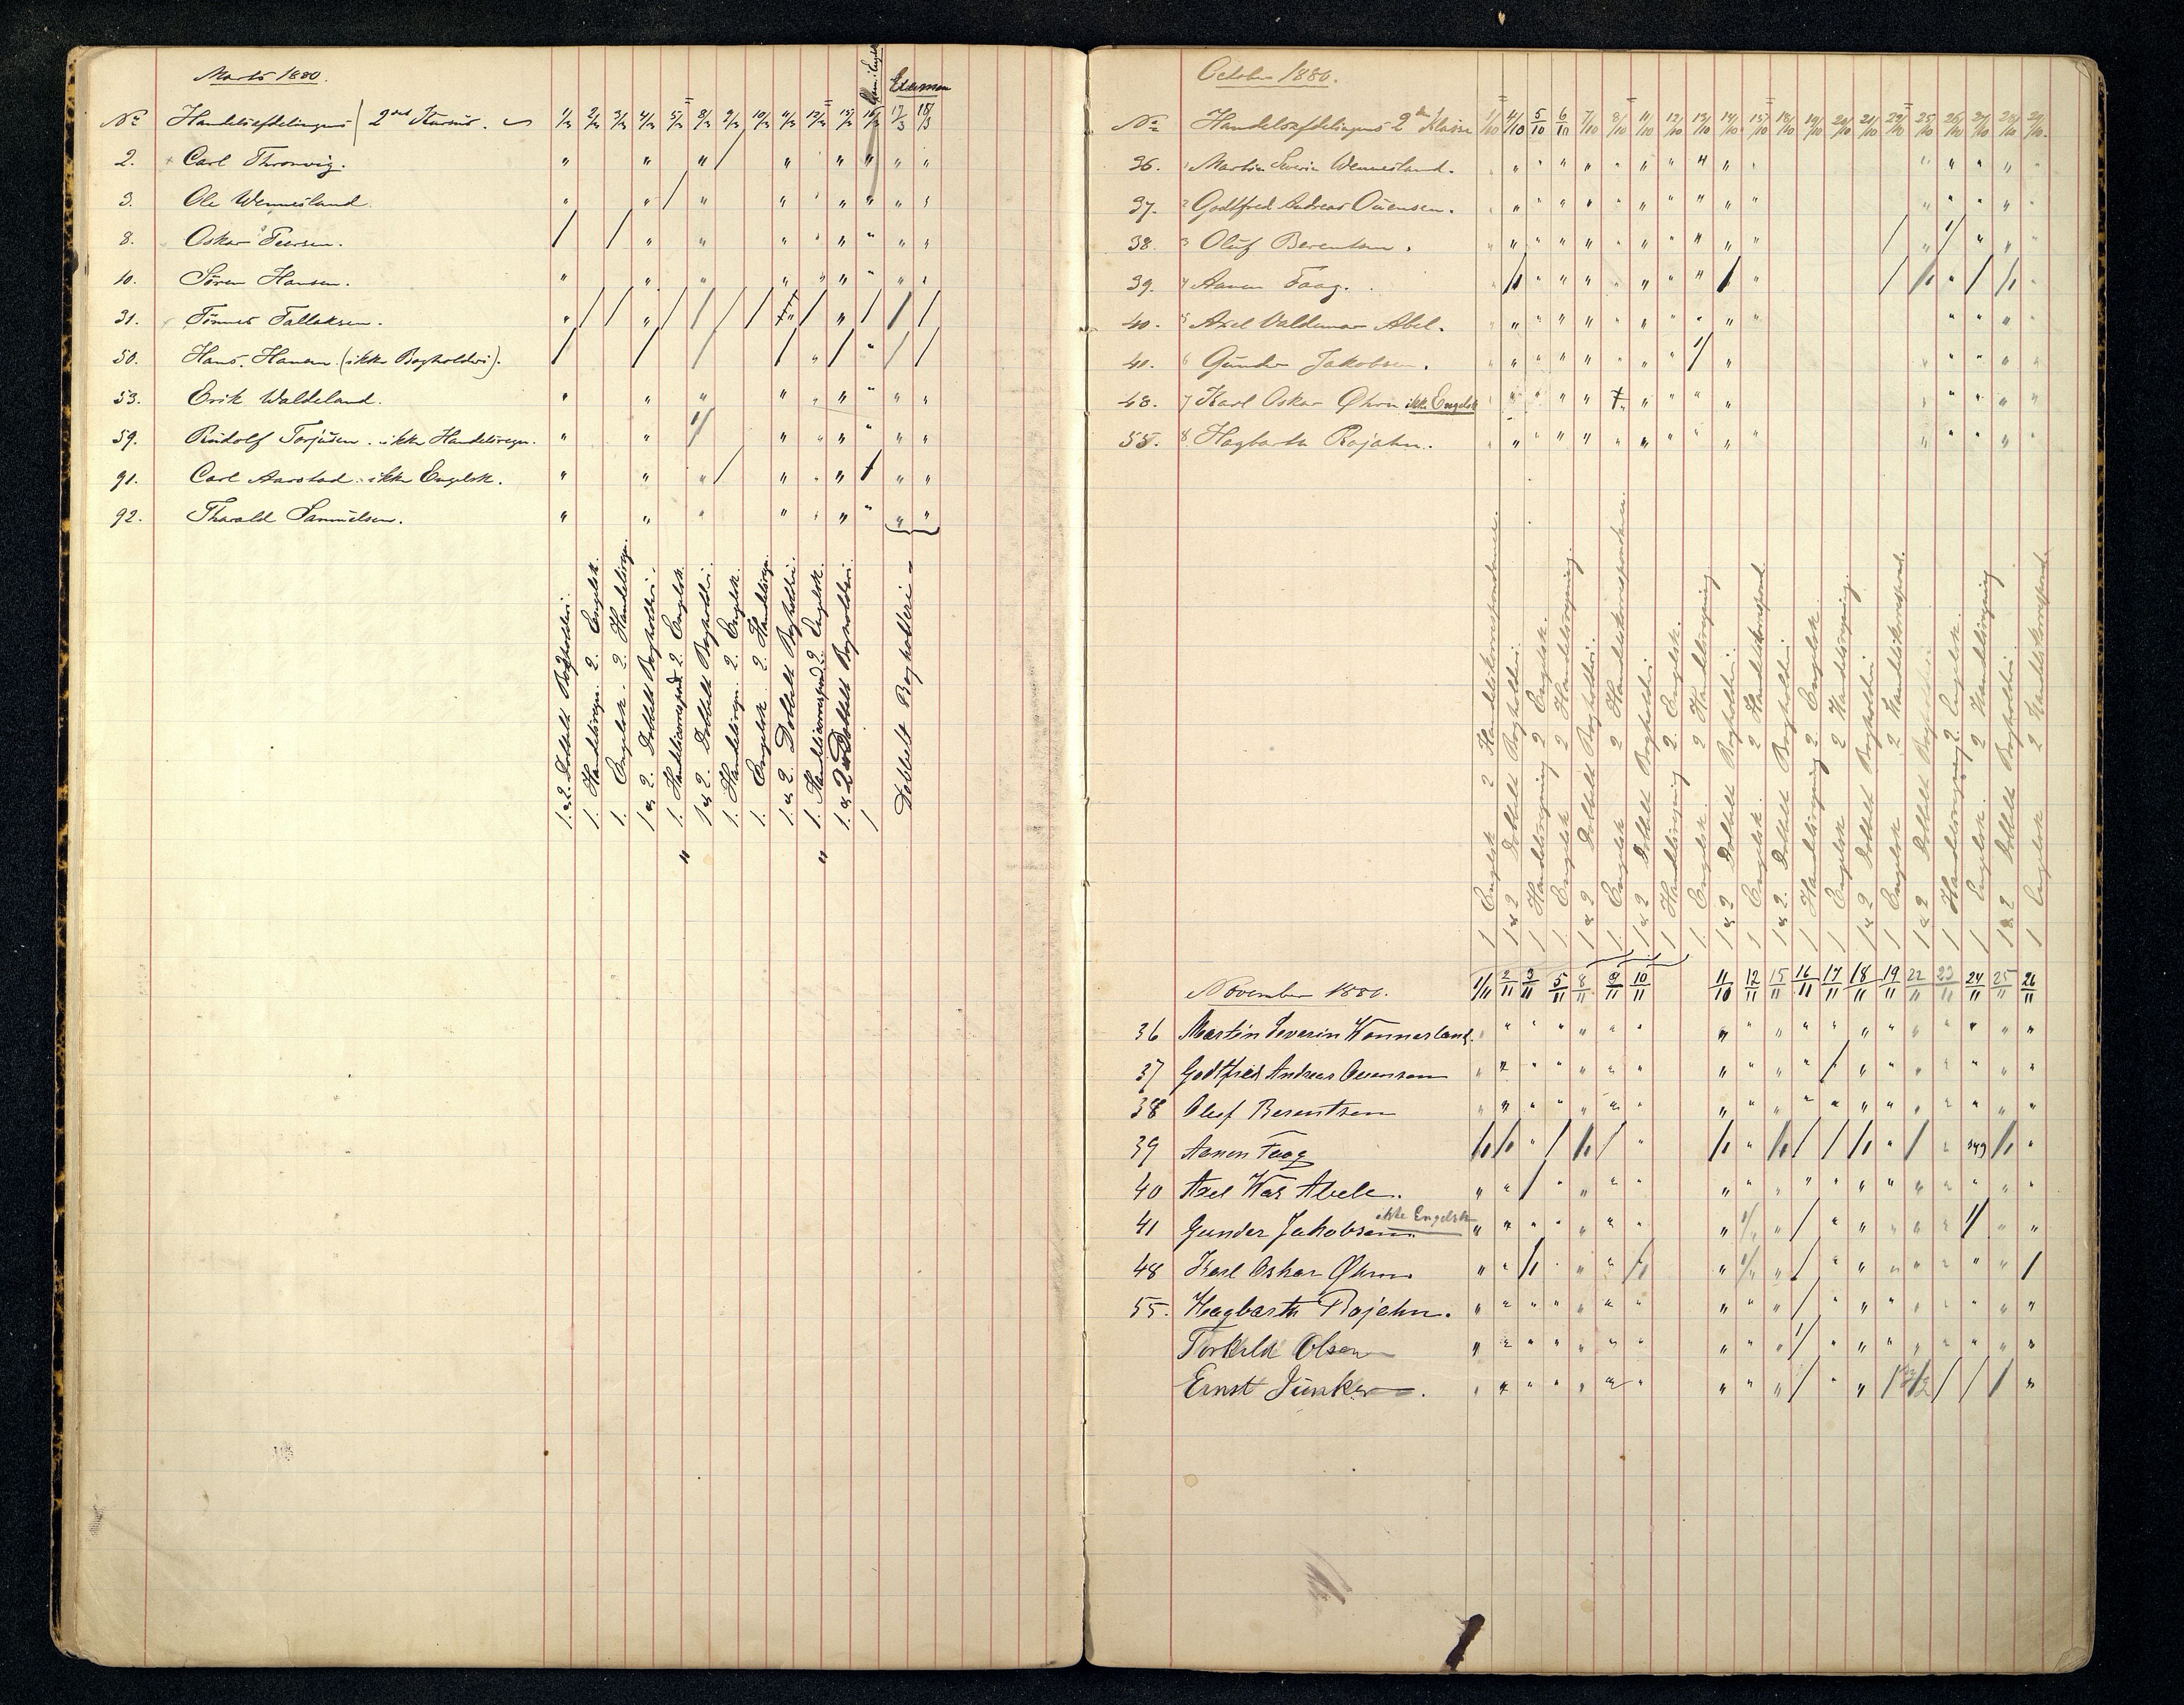 Marts 1880.
Examen
No Handelsafdelingens 2det Kursus. 1/3 2/3 3/3 4/3 5/3 8/3 9/3 10/3 11/3 12/3 15/3 16/3 17/3 18/3
2. Carl Thronvig.
3. Ole Wennesland.
8. Oskar Peersen.
10. Sören Hansen.
31. Tönnes Tallaksen.
50. Hans Hansen (ikke Bogholderi).
53. Erik Waldeland.
59. Rudolf Torjusen. ikke Handelsregn.
91. Carl Aarstad. ikke Engelsk.
92. Tharald Samuelsen.
1. & 2. Dobbelt Bogholderi.
1. Handelsregn. 2. Engelsk.
1. Engelsk. 2. Handelsregn.
1 & 2. Dobbelt Bogholderi.
1. Handelscorrespond. 2. Engelsk.
1 & 2. Dobbelt Bogholderi.
1. Handelsregn. 2. Engelsk.
1. Engelsk. 2. Handelsregn.
1. & 2. Dobbelt Bogholderi.
1. Handelscorrespond. 2. Engelsk.
1. & 2. Dobbelt Bogholderi.
1
Dobbelt Bogholderi
October 1880.
No Handelsafdelingens 2den Klasse 1/10 4/10 5/10 6/10 7/10 8/10 11/10 12/10 13/10 14/10 15/10 18/10 19/10 20/10 21/10 22/10 25/10 26/10 27/10 28/10 29/10.
36. 1 Martin Severin Wennesland.
37. 2 Godtfred Andreas Ouensen.
38. 3 Oluf Berentsen.
39. 4 Aanen Faag.
40. 5 Axel Valdemar Abel.
41. 6 Gunder Jakobsen.
48. 7 Karl Oskar Øhrn ikke Engelsk
55. 8 Hagbarth Rojahn.
1 Engelsk 2 Handelskorrespondence.
1 & 2 Dobbelt Bogholderi.
1 Handelsregning 2 Engelsk.
1. Engelsk 2 Handelsregning.
1 & 2 Dobbelt Bogholderi.
1. Engelsk 2 Handelskorrespondence.
1 & 2. Dobbelt Bogholderi
1 Handelsregning 2. Engelsk.
1. Engelsk. 2 Handelsregning
1 & 2. Dobbelt Bogholderi.
1 Engelsk. 2 Handelskorrespond.
1 & 2. Dobbelt Bogholderi
1 Handelsregning 2 Engelsk.
1 Engelsk 2 Handelsregning.
1 & 2 Dobbelt Bogholderi
1 Engelsk 2 Handelskorrespond.
1 & 2 Dobbelt Bogholderi
1 Handelsregning 2. Engelsk.
1. Engelsk. 2 Handelsregning
1 & 2 Dobbelt Bogholderi.
1 Engelsk 2 Handelskorrespond.
November 1880. 1/11 2/11 3/11 5/11 8/11 9/11 10/11 11/10 12/11 15/11 16/11 17/11 18/11 19/11 22/11 23/11 24/11 25/11 26/11
36 Martin Severin Wennesland.
37 Godtfred Andreas Ouensen
38 Oluf Berentsen
39 Aanen Faag
40 Axel Wal Abele.
41 Gunder Jakobsen. ikke Engelsk
48 Karl Oskar Øhrn
55. Hagbarth Rojahn.
Torkild Olsen
Ernst Junker.